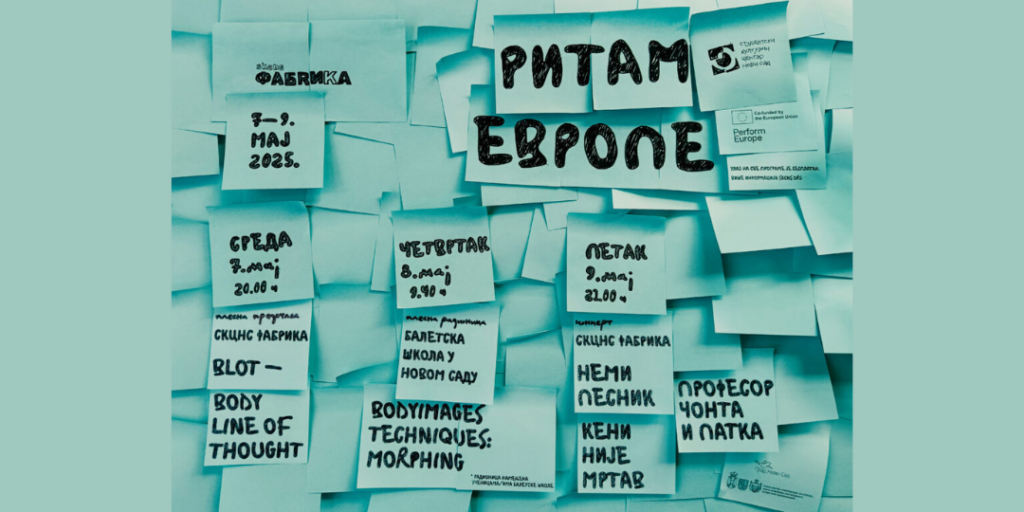 ФАБRИКА
7–9.
МАЈ
2025.
РИТАМ
ЕВРОПЕ
СТУДЕНТСКИ
КУЛТУРНИ
ЦЕНТАР
НОВИ САД
Co-funded by
the European Union
Perform
Europe
СРЕДА
7. мај
20.00 ч
СКЦНС ФАБРИКА
BLOT —
BODY
LINE OF
THOUGHT
ЧЕТВРТАК
8. мај
9.40 ч
плесна радионица
БАЛЕТСКА
ШКОЛА У
НОВОМ САДУ
BODYIMAGES
TECHNIQUES:
MORPHING
ПЕТАК
9. мај
21.00 ч
концерт
СКЦНС ФАБРИКА
НЕМИ
ПЕСНИК
КЕНИ
НИЈЕ
МРТАВ
ПРОФЕСОР
ЧОНТА
И ПАТКА